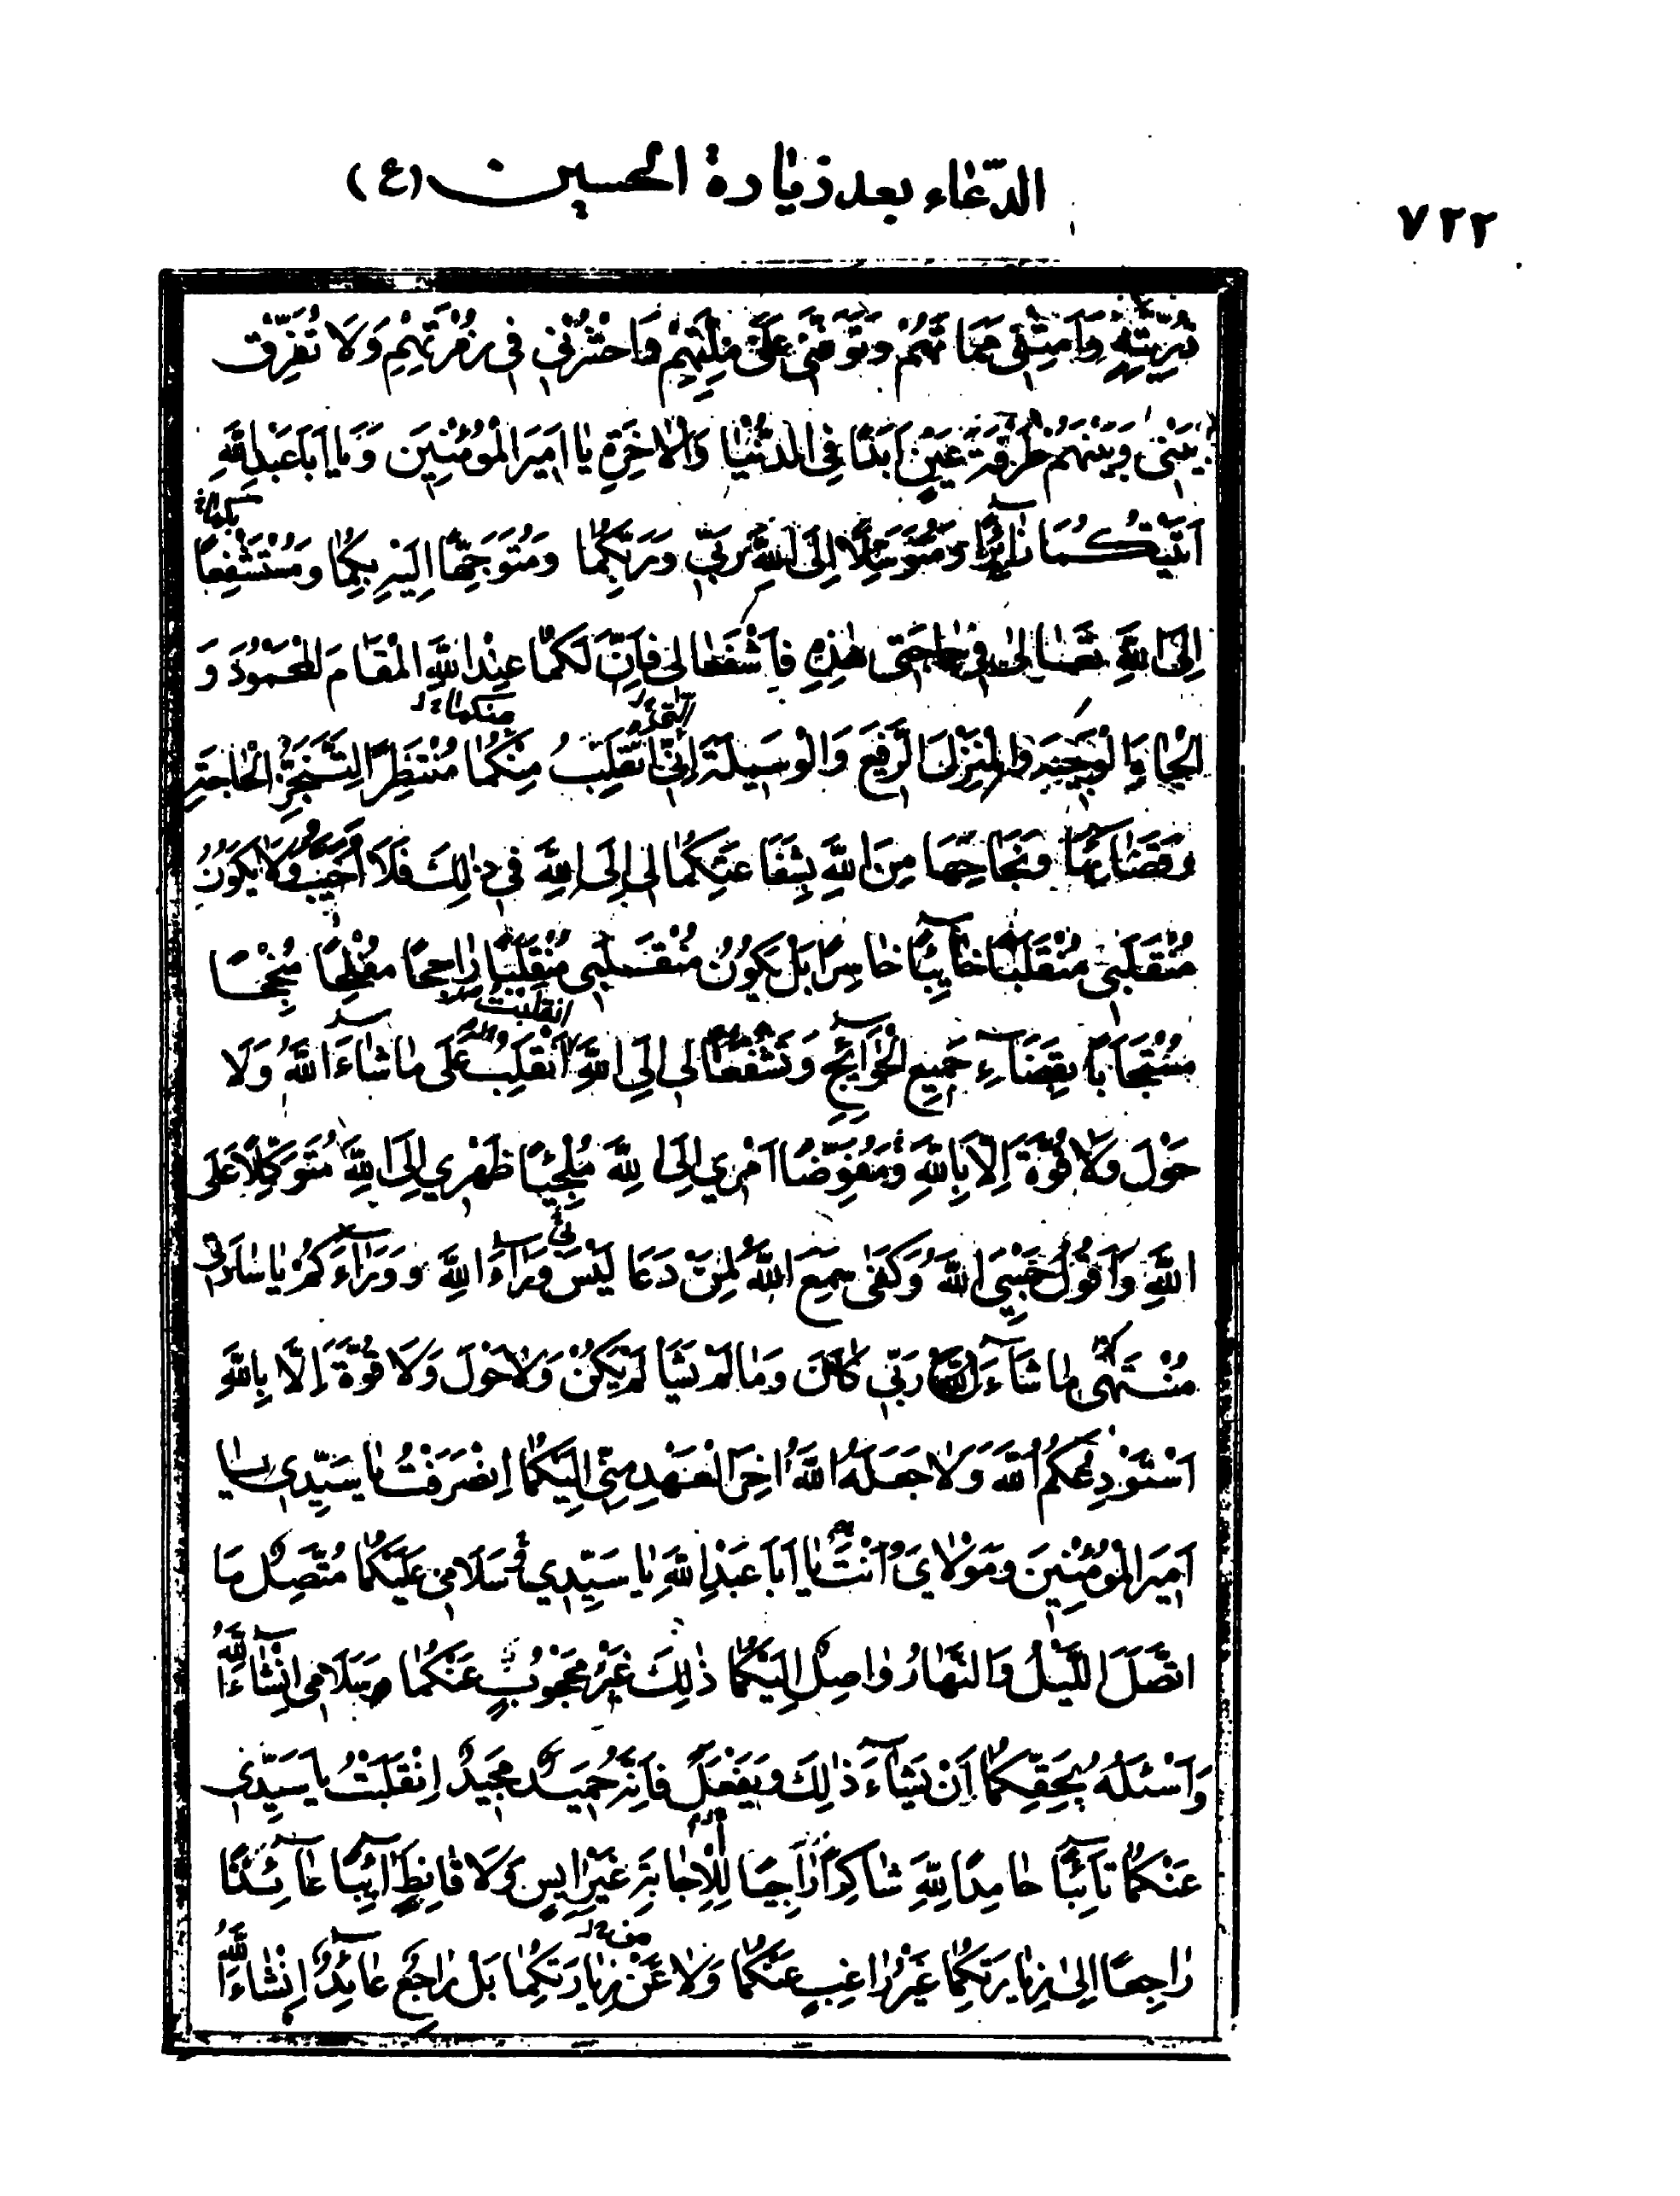 ٧٢٢
الدّعاء بعد زيادة الحسين (ع)
ذُرِّيَّتِهِ وَاَمِتْنى مَمَاتَهُمْ وَتَوَفَّنى عَلى مِلَّتِهِمْ فَاحْشُرْنى فى زُمْرَتِهِمْ وَلَا تُفَرِّقْ
بَيْنى وَبَيْنَهُمْ طَرْفَةَ عَيْنٍ اَبَدًا فِى الدُّنْيٰا وَالْاٰخِرَةِ يٰا اَمِيرَ الْمُؤْمِنِينَ وَيٰا اَبَا عَبْدِ اللّٰهِ
بكما
اَتَيْتُكُمَا زٰآئِرًا وَمُتَوَسِّلًا اِلَى اللّٰهِ رَبّى وَرَبِّكُمٰا وَمُتَوَجِّهًا اِلَيْهِ بِكُمٰا وَمُسْتَشْفِعًا
اِلَى اللّٰهِ تَعٰالىٰ فى حٰاجَتى هٰذِهِ فَاشْفَعٰا لى فَاِنَّ لَكُمٰا عِنْدَ اللّٰهِ الْمَقٰامَ الْمَحْمُودَ وَ
منكما
الْجٰاهَ الْوَجِيهَ وَالْمَنْزِلَ الرَّفِيعَ وَالْوَسِيلَةَ اِنّى اَنْقَلِبُ مِنْكُمٰا مُنْتَظِرًا لِتَنَجُّزِ الْحٰاجَةِ
وَقَضٰائِهٰا وَنَجٰاحِهٰا مِنَ اللّٰهِ بِشَفٰاعَتِكُمٰا لى اِلَى اللّٰهِ فى ذٰلِكَ فَلَا اَخِيبُ وَلَا يَكُونُ
مُنْقَلَبى مُنْقَلَبًا خٰآئِبًا خٰاسِرًا بَلْ يَكُونُ مُنْقَلَبى مُنْقَلَبًا رٰاجِحًا مُفْلِحًا مُنْجِحًا
انقلبت
مُسْتَجٰابًا بِقَضٰآءِ جَمِيعِ الْحَوٰآئِجِ وَتَشَفَّعٰا لى اِلَى اللّٰهِ اَنْقَلِبُ عَلى مٰا شٰآءَ اللّٰهُ وَلَا
حَوْلَ وَلَا قُوَّةَ اِلَّا بِاللّٰهِ وَمُفَوِّضًا اَمْرِي اِلَى اللّٰهِ مُلْجِئًا ظَهْرِي اِلَى اللّٰهِ مُتَوَكِّلًا عَلَى
لى
اللّٰهِ وَاَقُولُ حَسْبِىَ اللّٰهُ وَكَفٰى سَمِعَ اللّٰهُ لِمَنْ دَعَا لَيْسَ وَرٰآءَ اللّٰهِ وَوَرٰآءَكُمْ يٰا سٰادَتى
مُنْتَهٰى مٰا شٰآءَ اللّٰهُ رَبّى كٰانَ وَمٰا لَمْ يَشَأْ لَمْ يَكُنْ وَلٰا حَوْلَ وَلَا قُوَّةَ اِلَّا بِاللّٰهِ
اَسْتَوْدِعُكُمَا اللّٰهَ وَلٰا جَعَلَهُ اللّٰهُ اٰخِرَ الْعَهْدِ مِنّى اِلَيْكُمٰا اِنْصَرَفْتُ يٰا سَيِّدِي يٰا
اَمِيرَ الْمُؤْمِنِينَ وَمَوْلٰايَ وَاَنْتَ يٰا اَبَا عَبْدِ اللّٰهِ يٰا سَيِّدِي وَسَلَامى عَلَيْكُمٰا مُتَّصِلٌ مَا
اتَّصَلَ اللَّيْلُ وَالنَّهٰارُ وٰاصِلٌ اِلَيْكُمٰا ذٰلِكَ غَيْرُ مَحْجُوبٍ عَنْكُمٰا سَلَامى اِنْشٰآءَ اللّٰهُ
وَاَسْئَلُهُ بِحَقِّكُمٰا اَنْ يَشٰآءَ ذٰلِكَ وَيَفْعَلَ فَاِنَّهُ حَمِيدٌ مَجِيدٌ اِنْقَلَبْتُ يٰا سَيِّدَىَّ
عَنْكُمٰا تٰآئِبًا حٰامِدًا لِلّٰهِ شٰاكِرًا رٰاجِيًا لِلْاِجٰابَةِ غَيْرَ اٰيِسٍ وَلَا قٰانِطٍ اٰئِبًا عٰآئِدًا
من
رٰاجِعًا اِلىٰ زِيٰارَتِكُمٰا غَيْرَ رٰاغِبٍ عَنْكُمٰا وَلٰا عَنْ زِيٰارَتِكُمٰا بَلْ رٰاجِعٌ عٰآئِدٌ اِنْشٰآءَ اللّٰهُ